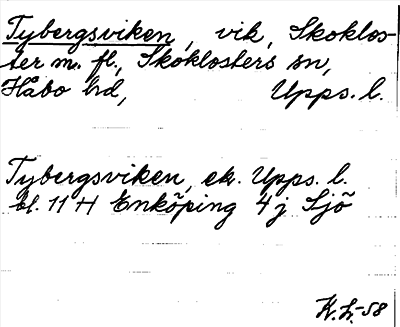 Tybergsviken, vik, Skoklos-
ter m. fl., Skoklosters sn,
Håbo hd, Upps. l.
Tybergsviken, ek. Upps. l.
bl. 11 H Enköping 4 j Sjö
K. L. -58